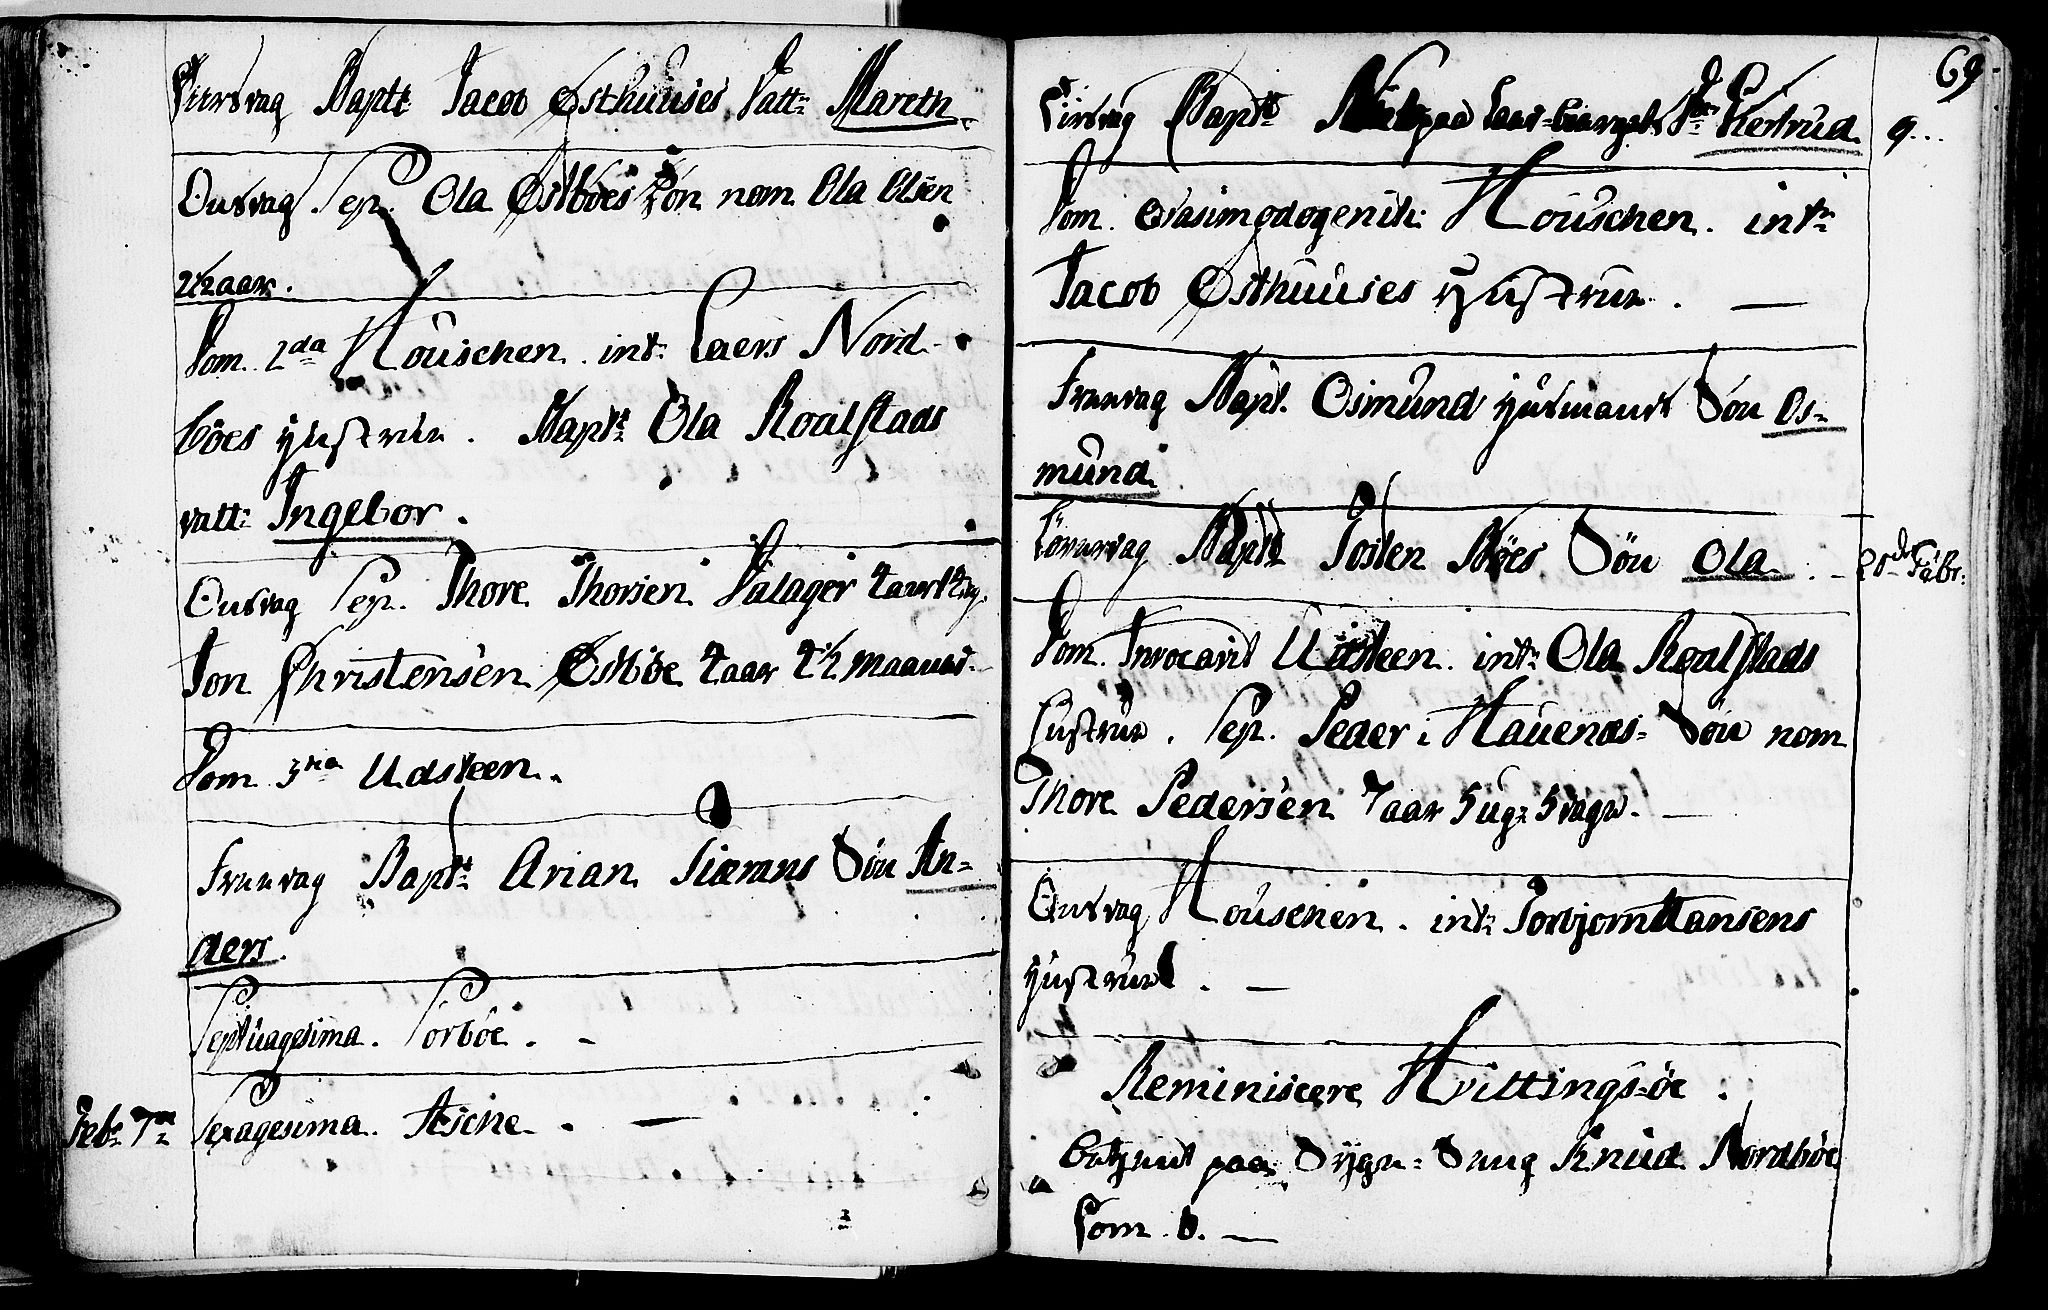 Tirsdag Bapt: Jacob Østhuuses Datt: Mareth.
Onsdag Sep. Ola Østbøes Søn nom. Ola Olsen
2 1/2 aar.
Dom. 2da Houschen. int: Laers Nord-
bøes Hustrue. Bapt: Ola Roalstads
datt: Ingebor.
Onsdag Sep. Thore Thorsen Valager
Jon Christensen Østbøe 4 aar 4 1/2 maaned.
Dom. 3tia Udsteen.
Fredag Bapt: Arian Søn An-
ders.
Septuagesima. Sørbøe. -
Febr. 7de Sexagesima. Asche. —
69.
Tirsdag Bapt: Dtr: Giertrud 9...
Dom. Qvasimodogenit: Houschen. int:
Jacob Østhuuses Hustrue. —
Fredag Bapt. Osmund Huusmands Søn Os-
mund.
Løverdag Bapt: Josten Bøes Søn Ola. - 20de Febr:
Dom. Invocavit Udsteen. int: Ola Roalstads
Hustrue. Sep. Peder i Hauenæs Søn nom.
Thore Pedersen 7 aar 5 ug: 5 dage. —
Onsdag Houschen. int: Torbjorn Hansens
Hustrue. —
Reminiscere Hvittingsøe.
Betient paa Syge-Seng Knud Nordbøe
Dom. —